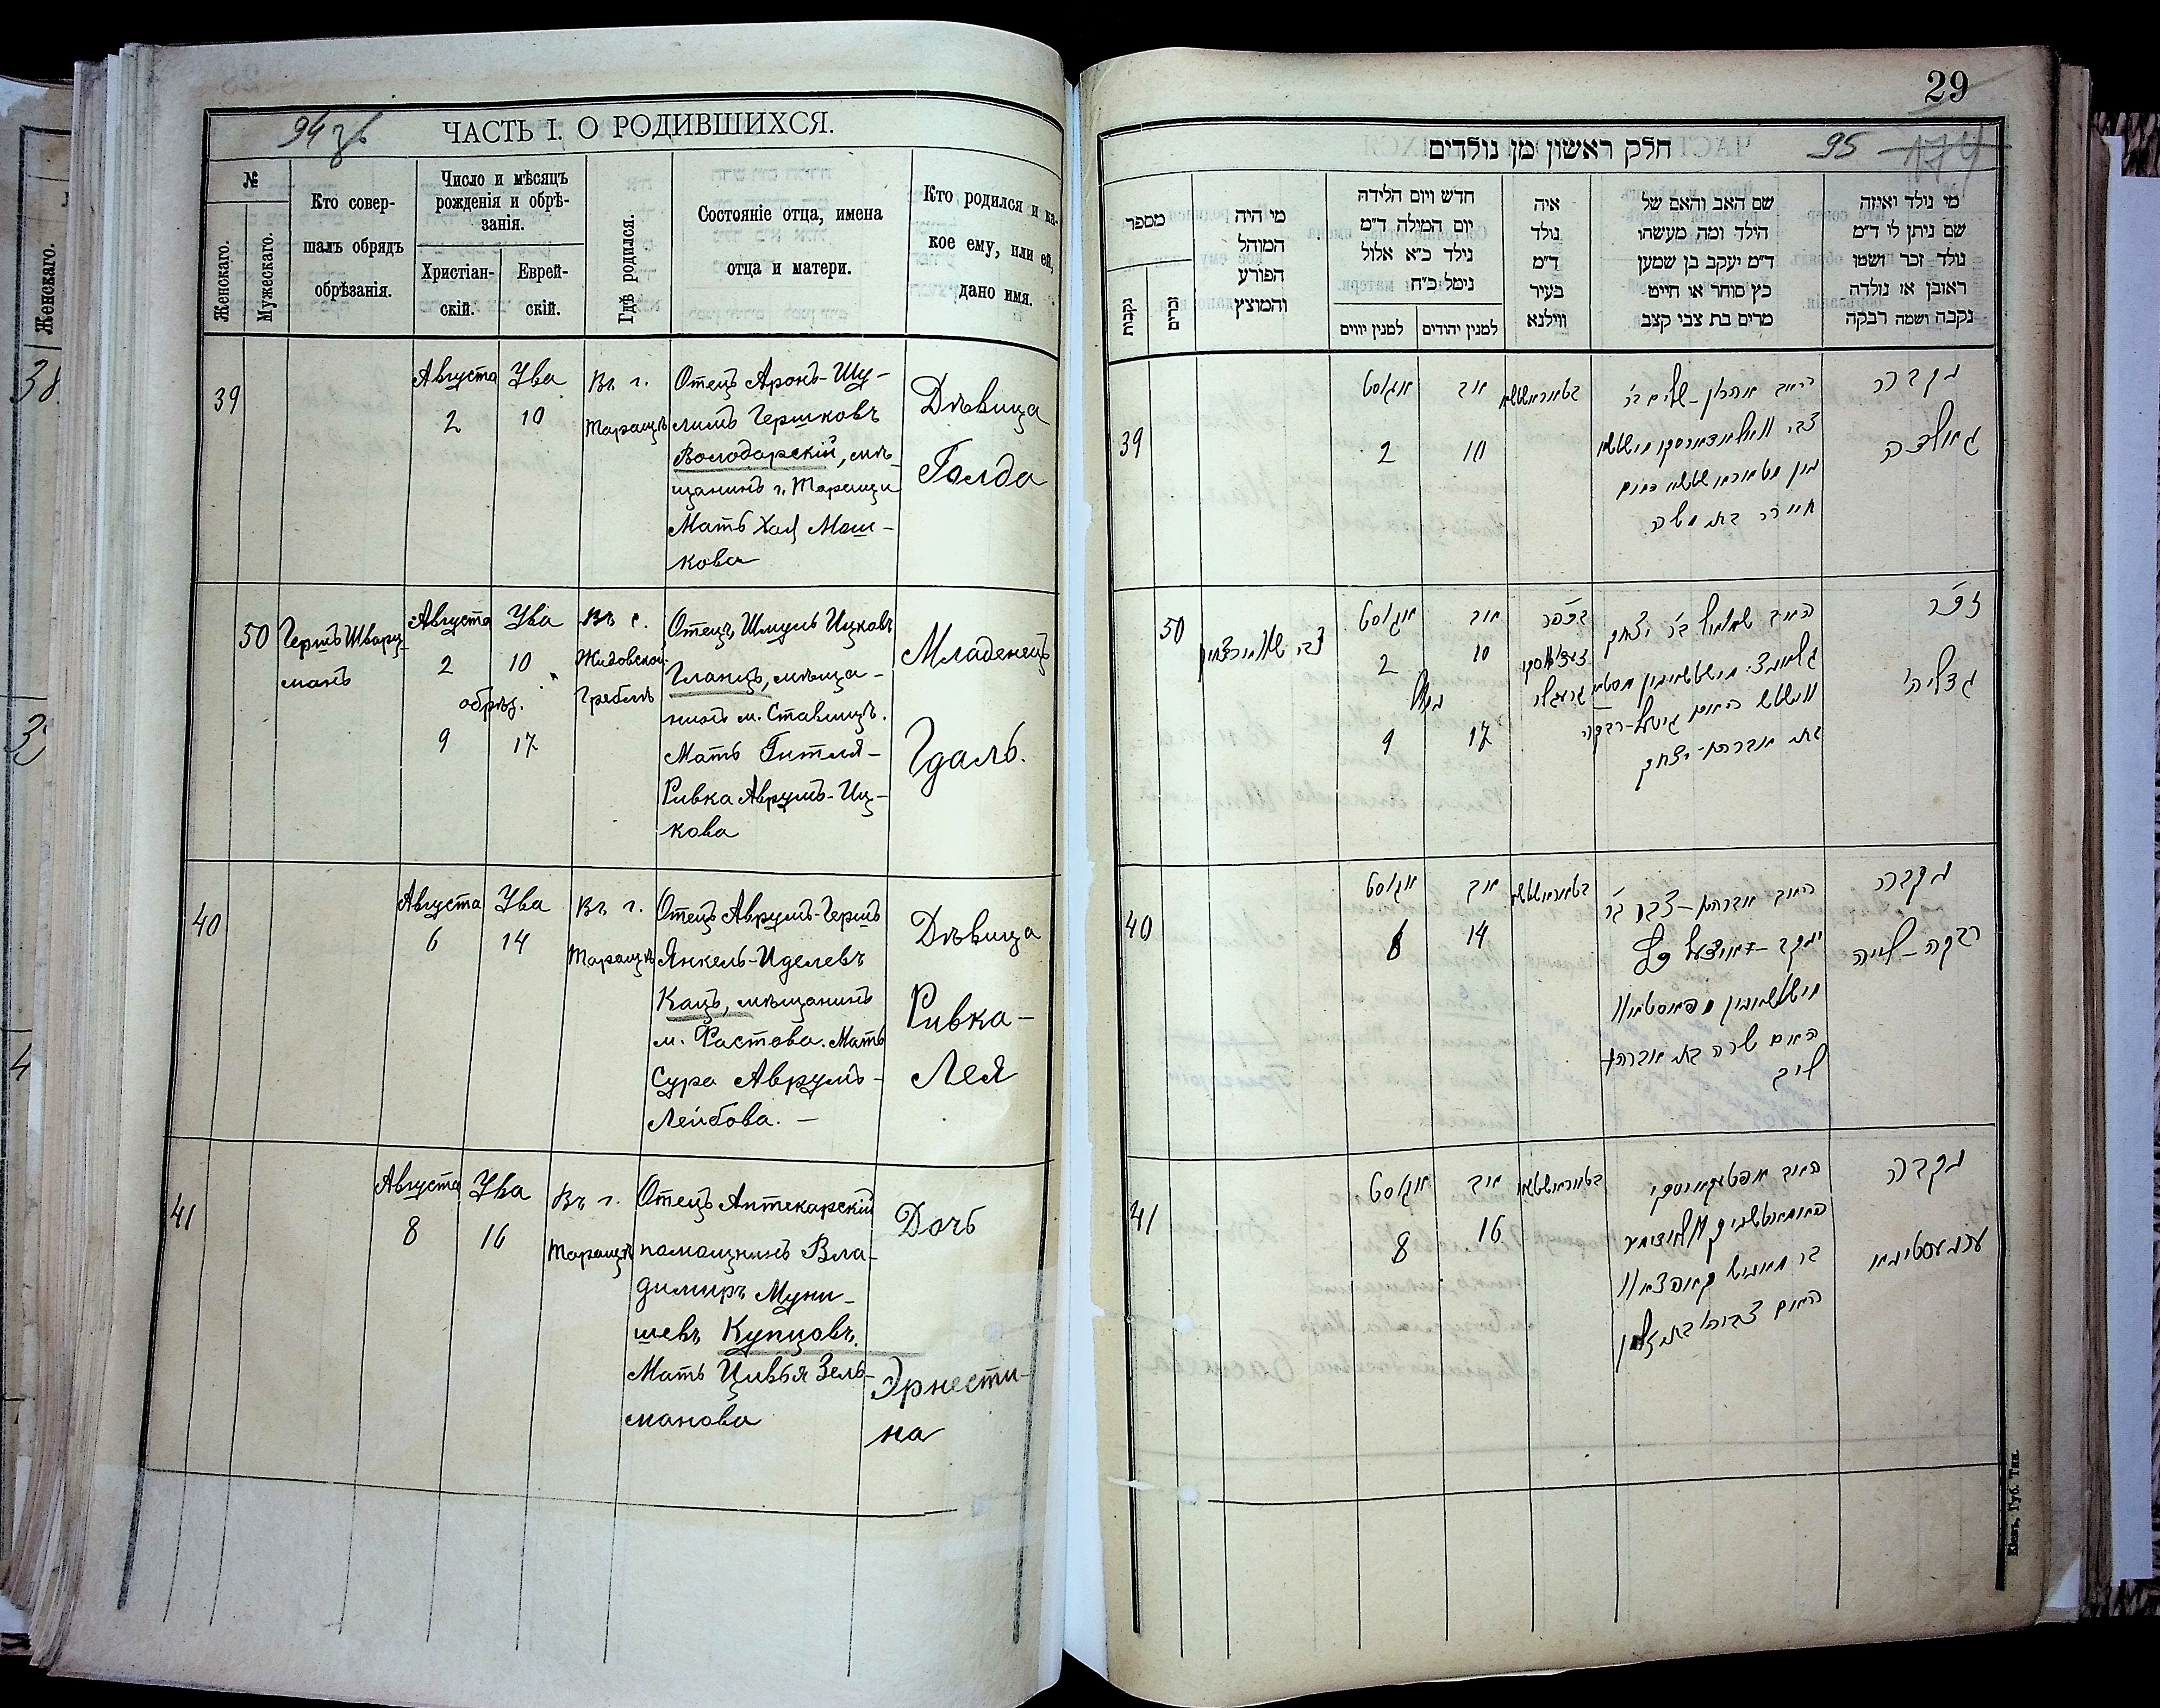 94 об
ЧАСТЬ I. О РОДИВШИХСЯ.
№
Женскаго.
Мужескаго.
Кто совер-
шалъ обрядъ
обрѣзанія.
Число и мѣсяцъ
рожденія и обрѣ-
занія.
Христіан-
скій.
Еврей-
скій.
Гдѣ родился.
Состояніе отца, имена
отца и матери.
Кто родился и ка-
кое ему, или ей,
дано имя.
39
Августа
2
Ува
10
Въ г.
Таращѣ
Отецъ Аронъ-Шу-
лимъ Гершковъ
Володарскій, мѣ-
щанинъ г. Таращи
Мать Хая Мош-
кова
Дѣвица
Голда
50
Гершъ Шварц-
манъ
Августа
2
обрѣз.
9
Ува
10
17
Въ с.
Жидовской
Греблѣ
Отецъ Шмуль Ицковъ
Гланцъ, мѣща-
нинъ м. Ставищъ.
Мать Гитля-
Ривка Аврумъ-Иц-
кова
Младенецъ
Гдаль.
40
Августа
6
Ува
14
Въ г.
Таращѣ
Отецъ Аврумъ-Гершъ
Янкель-Иделевъ
Кацъ, мѣщанинъ
м. Фастова. Мать
Сура Аврумъ-
Лейбова. —
Дѣвица
Ривка-
Лея
41
Августа
8
Ува
16
Въ г.
Таращѣ
Отецъ Аптекарскій
помощникъ Вла-
димиръ Муни-
шевъ Купцовъ.
Мать Цивья Зель-
манова
Дочь
Эрнести-
на
29
95 174
חלק ראשון מן נולדים
מספר
נקבות
זכרים
מי היה
המוהל
הפורע
והמוצץ
חדש ויום הלידה
יום המילה ד״מ
נילד כ״א אלול
נימל כ״ח
למנין יווים
למנין יהודים
איה
נולד
ד״מ
בעיר
ווילנא
שם האב והאם של
הילד ומה מעשהו
ד״מ יעקב בן שמעון
כץ סוחר או חייט
מרים בת צבי קצב
מי נולד ואיזה
שם ניתן לו ד״מ
נולד זכר ושמו
ראובן או נולדה
נקבה ושמה רבקה
39
אוגוסט
2
אב
10
האב אהרן-שלום ב״ר
חיה בת משה
נקבה
גאלדה
50
צבי שווארצמאן
אוגוסט
2
נמול
9
אב
10
17
בכפר
האב שמואל ב״ר יצחק
בת אברהם-יצחק
זכר
גדליה
40
אוגוסט
6
אב
14
האב אברהם-צבי ב״ר
האם שרה בת אברהם
ליב
נקבה
רבקה-לאה
41
אוגוסט
8
אב
16
האם צביה בת זלמן
נקבה
ערנעסטינא
Кіевъ, Губ. Тип.